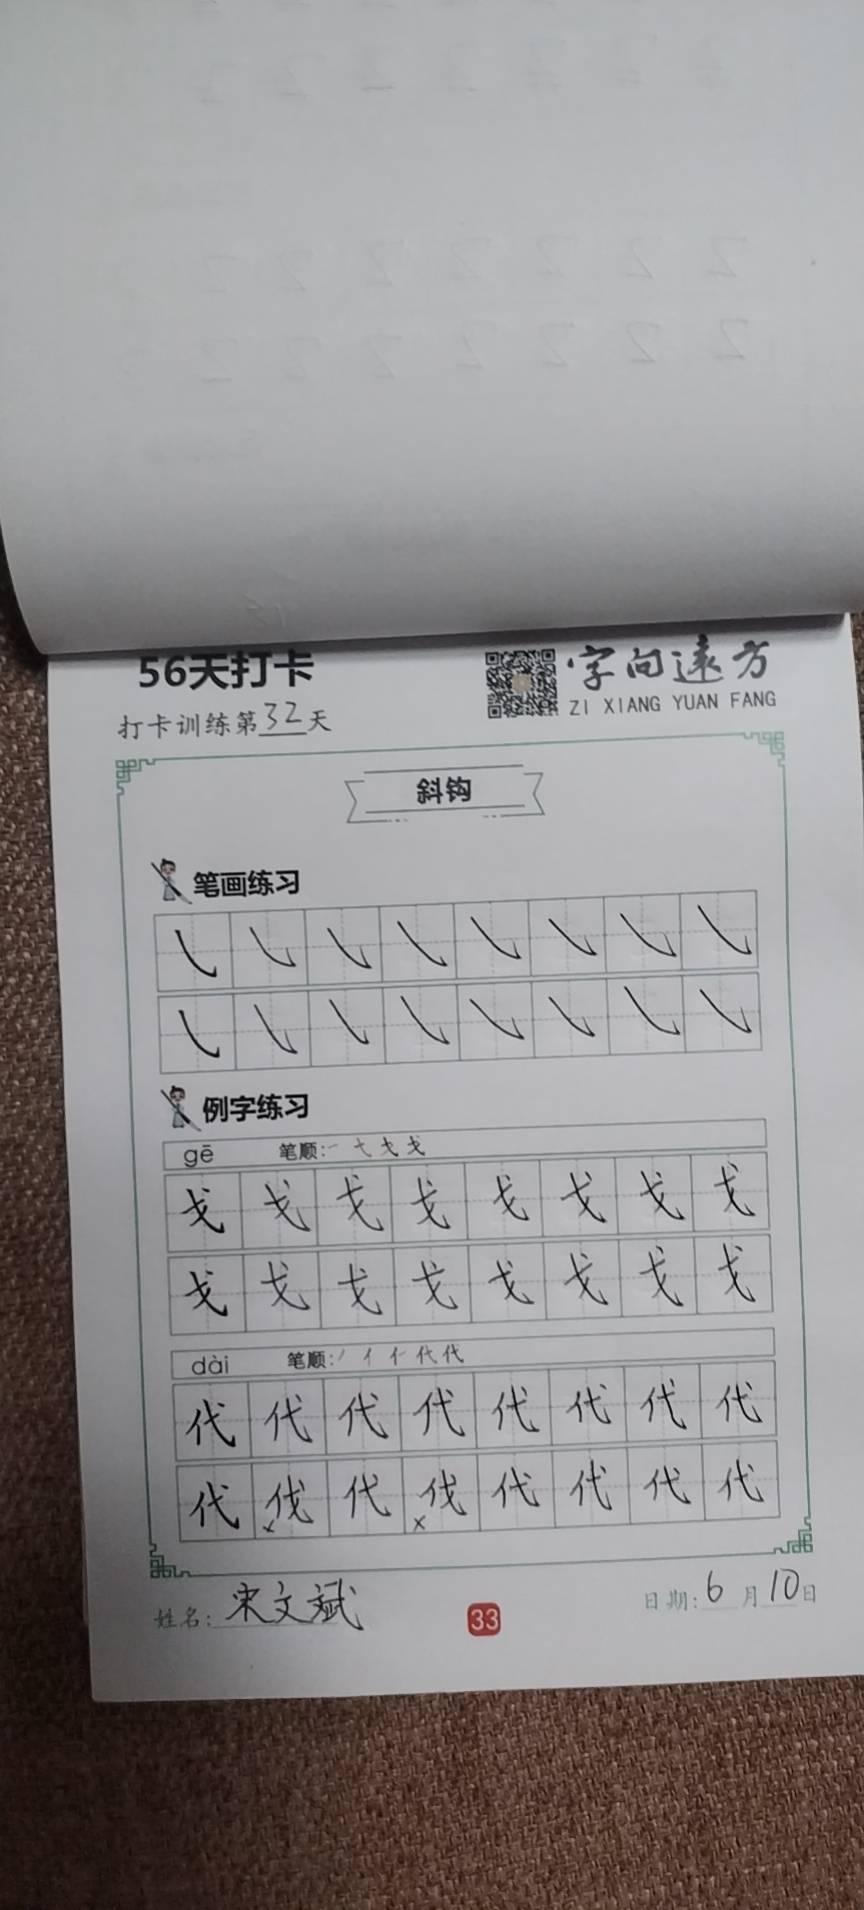 56天打卡
字向遠方
ZI XIANG YUAN FANG
打卡训练第32天
斜钩
笔画练习
㇂ ㇂ ㇂ ㇂ ㇂ ㇂ ㇂ ㇂
㇂ ㇂ ㇂ ㇂ ㇂ ㇂ ㇂ ㇂
例字练习
gē 笔顺:一 弋 戈 戈
戈 戈 戈 戈 戈 戈 戈 戈
戈 戈 戈 戈 戈 戈 戈 戈
dài 笔顺:丿 亻 仁 代 代
代 代 代 代 代 代 代 代
代 伐 代 伐 代 代 代 代
× ×
姓名:宋文斌
33
日期:6月10日